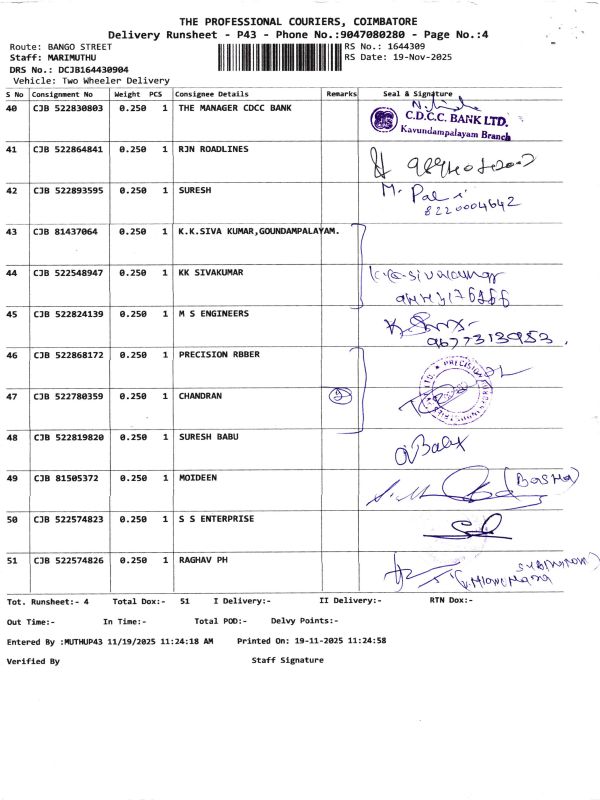 THE PROFESSIONAL COURIERS, COIMBATORE
Delivery Runsheet - P43 - Phone No.:9047080280 - Page No.:4
Route: BANGO STREET
RS No.: 1644309
Staff: MARIMUTHU
RS Date: 19-Nov-2025
DRS No.: DCJB164430904
Vehicle: Two Wheeler Delivery
S No Consignment No Weight PCS Consignee Details Remarks Seal & Signature
40 CJB 522830803 0.250 1 THE MANAGER CDCC BANK
C.D.C.C. BANK LTD.
Kavundampalayam Branch
41 CJB 522864841 0.250 1 RJN ROADLINES
42 CJB 522893595 0.250 1 SURESH
8220004642
43 CJB 81437064 0.250 1 K.K.SIVA KUMAR,GOUNDAMPALAYAM.
44 CJB 522548947 0.250 1 KK SIVAKUMAR
45 CJB 522824139 0.250 1 M S ENGINEERS
9677313953.
46 CJB 522868172 0.250 1 PRECISION RBBER
PRECISION
47 CJB 522780359 0.250 1 CHANDRAN
48 CJB 522819820 0.250 1 SURESH BABU
49 CJB 81505372 0.250 1 MOIDEEN
50 CJB 522574823 0.250 1 S S ENTERPRISE
51 CJB 522574826 0.250 1 RAGHAV PH
Tot. Runsheet:- 4 Total Dox:- 51 I Delivery:- II Delivery:- RTN Dox:-
Out Time:- In Time:- Total POD:- Delvy Points:-
Entered By :MUTHUP43 11/19/2025 11:24:18 AM Printed On: 19-11-2025 11:24:58
Verified By Staff Signature